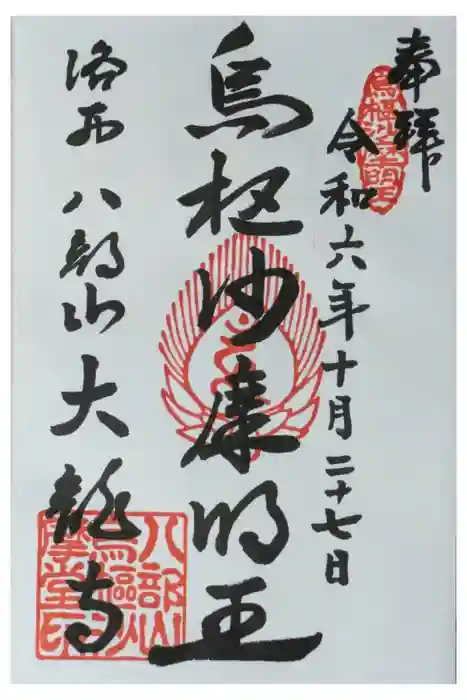 奉拝
令和六年十月二十七日
烏枢沙摩明王
洛西 八部山大龍寺